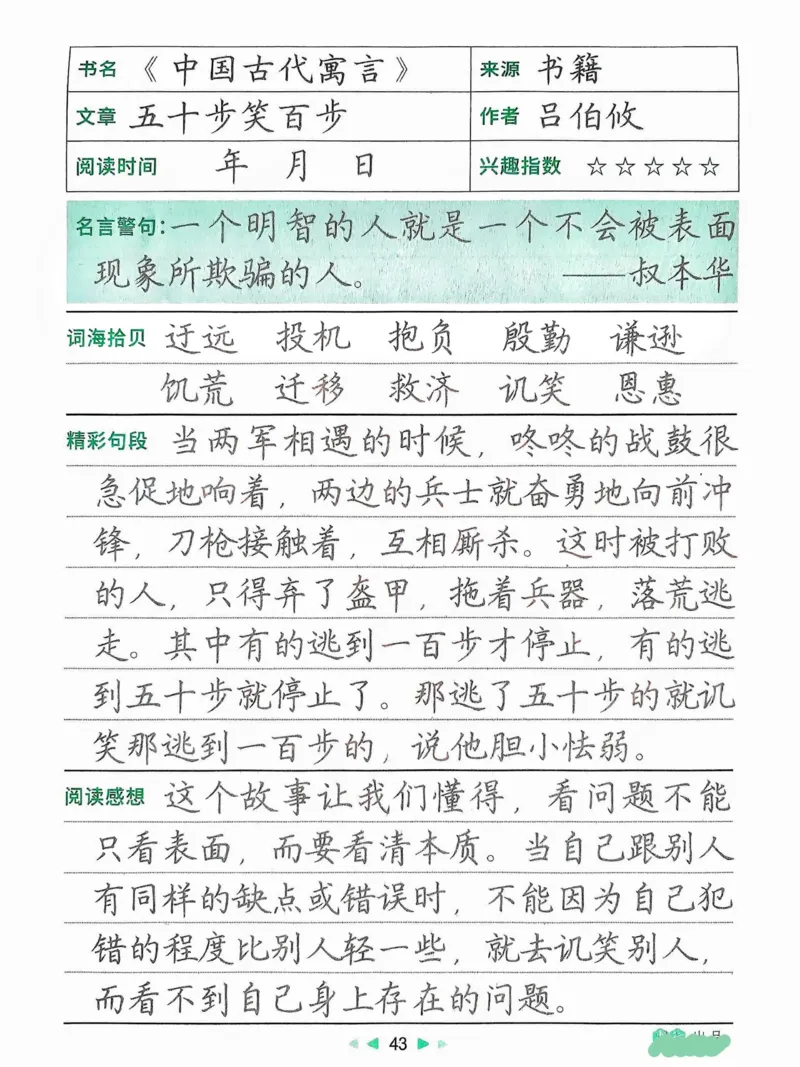 书名 《中国古代寓言》 来源 书籍
文章 五十步笑百步 作者 吕伯攸
阅读时间 年 月 日 兴趣指数 ☆☆☆☆☆
名言警句：一个明智的人就是一个不会被表面
现象所欺骗的人。 ——叔本华
词海拾贝 迂远 投机 抱负 殷勤 谦逊
饥荒 迁移 救济 讥笑 恩惠
精彩句段 当两军相遇的时候，咚咚的战鼓很
急促地响着，两边的兵士就奋勇地向前冲
锋，刀枪接触着，互相厮杀。这时被打败
的人，只得弃了盔甲，拖着兵器，落荒逃
走。其中有的逃到一百步才停止，有的逃
到五十步就停止了。那逃了五十步的就讥
笑那逃到一百步的，说他胆小怯弱。
阅读感想 这个故事让我们懂得，看问题不能
只看表面，而要看清本质。当自己跟别人
有同样的缺点或错误时，不能因为自己犯
错的程度比别人轻一些，就去讥笑别人，
而看不到自己身上存在的问题。
43